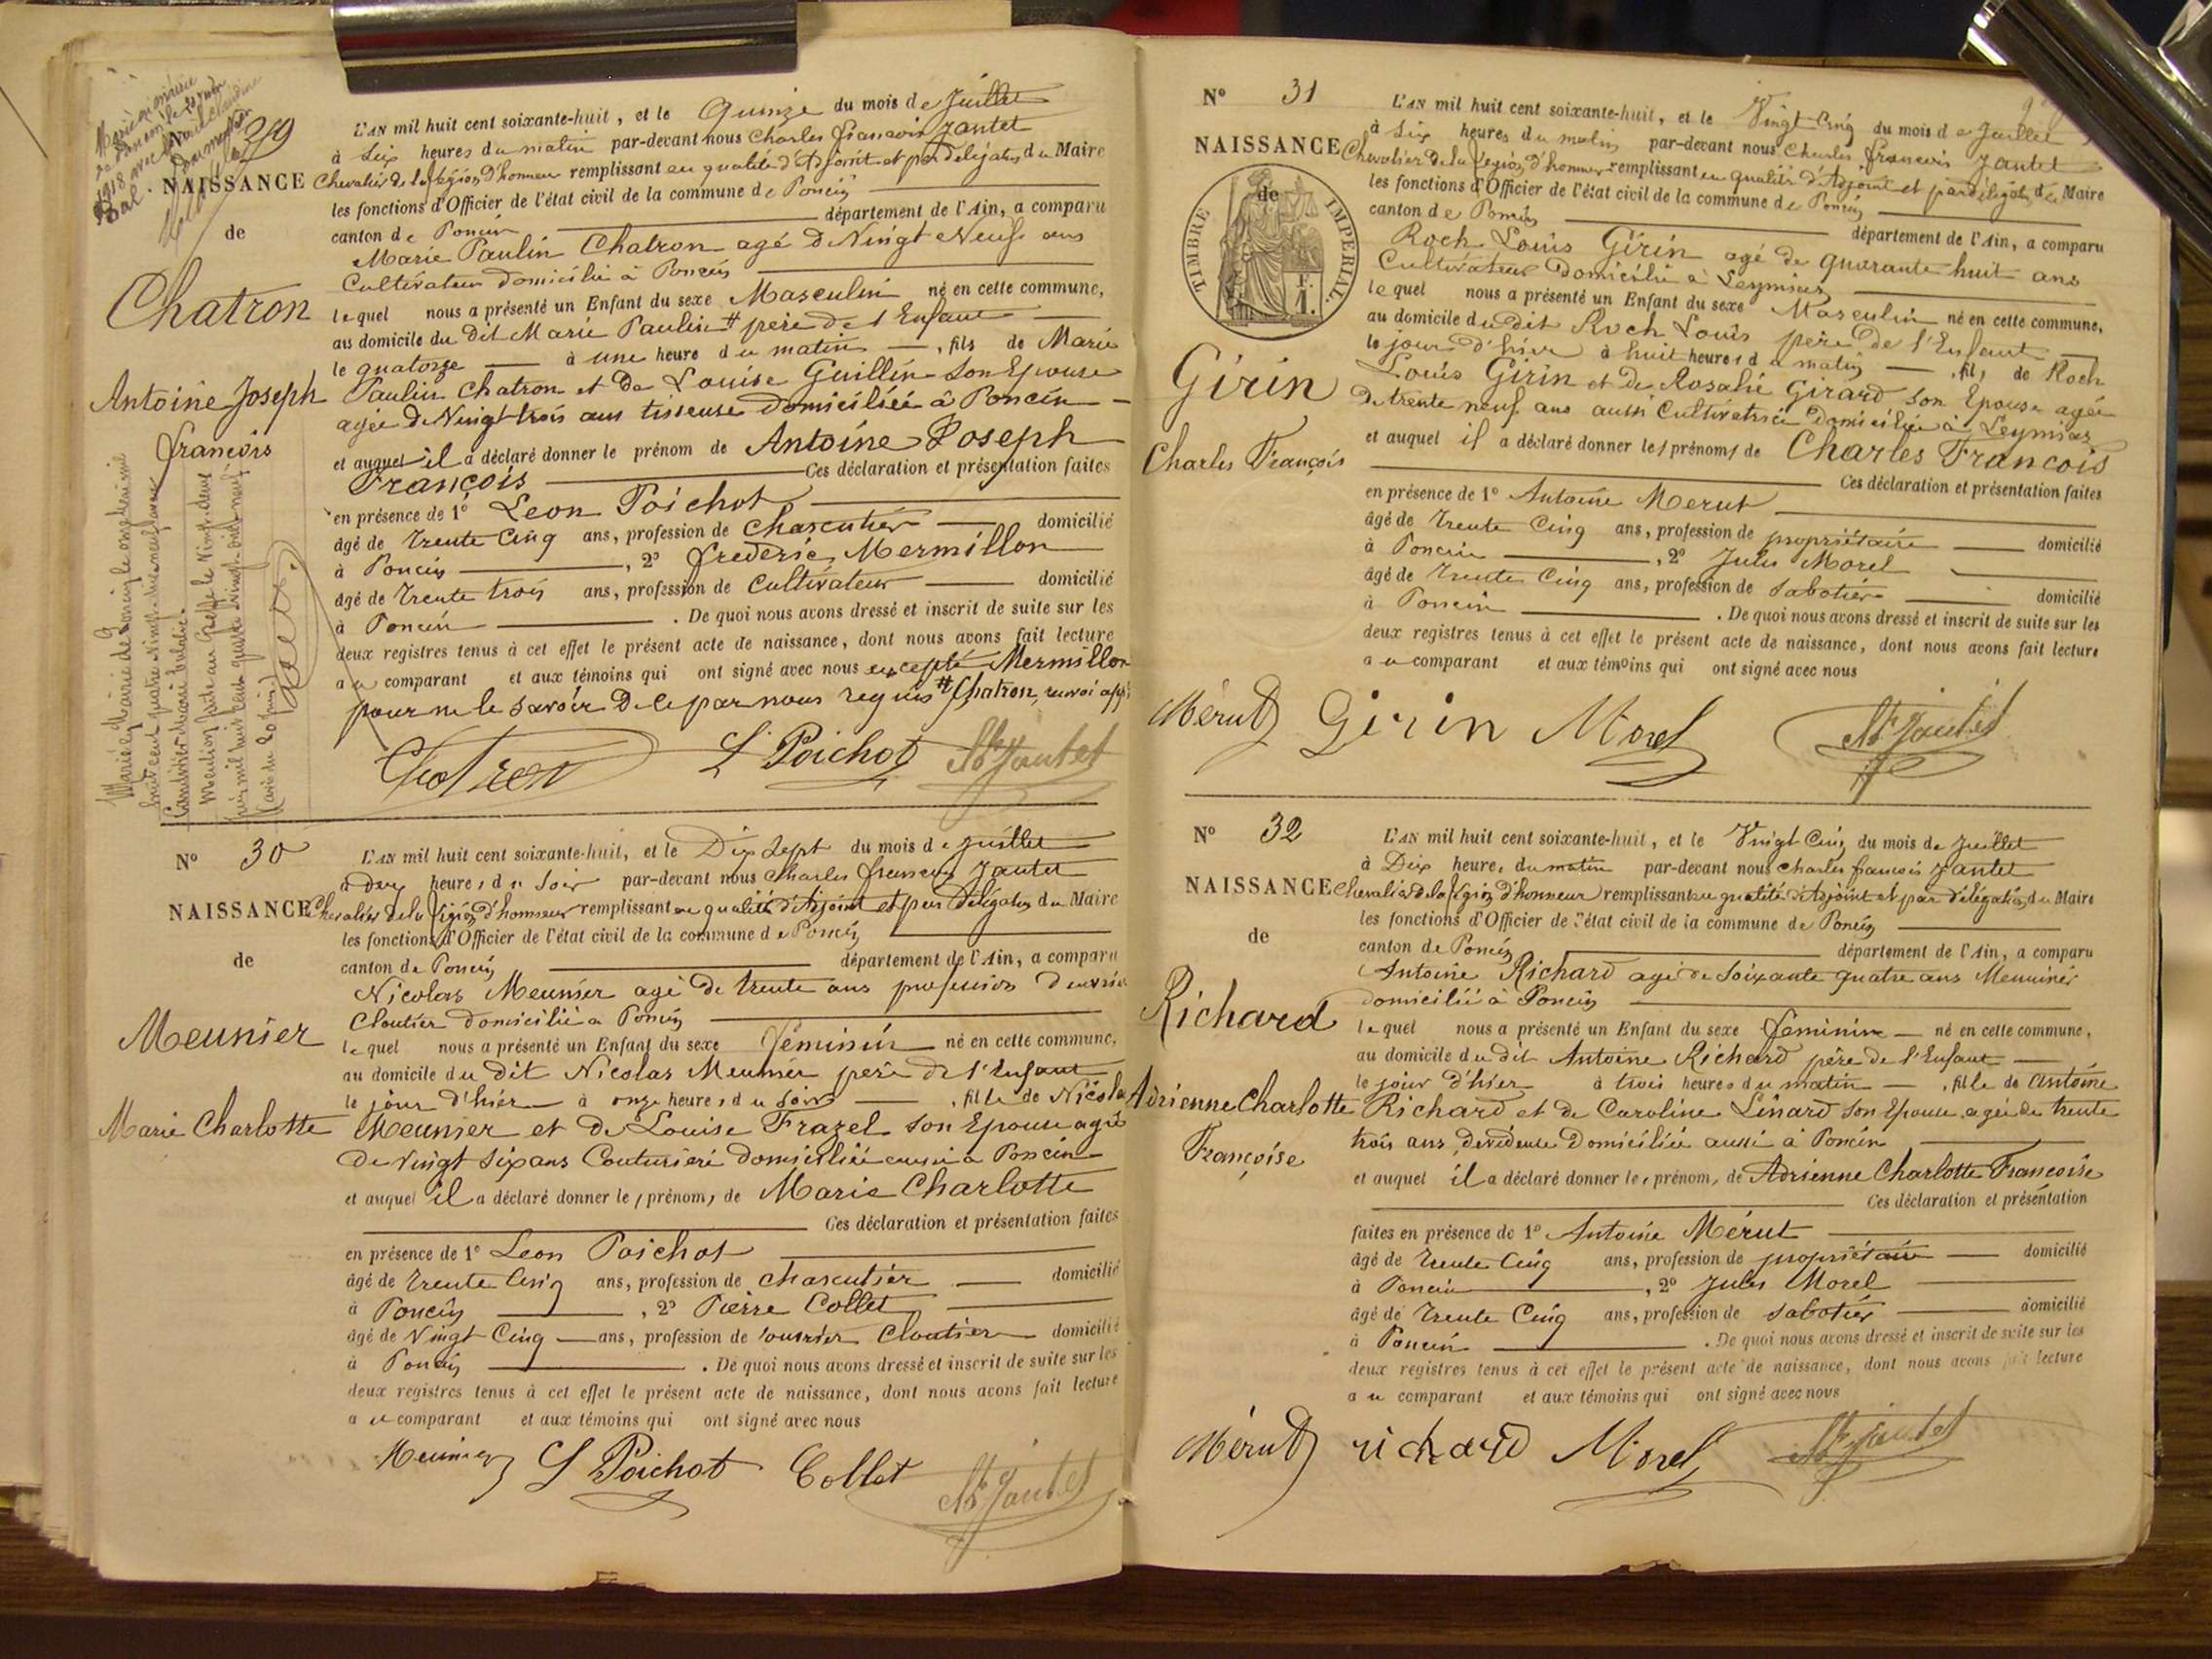 29
NAISSANCE
de
Chatron
Antoine Joseph
françois
L'AN mil huit cent soixante-huit, et le Quinze du mois de Juillet
à Six heures du matin par-devant nous Charles françois Jantet
Chevalier de la Légion d'honneur remplissant en qualité d'Adjoint et par délégation du Maire
les fonctions d'Officier de l'état civil de la commune de Poncin
canton de Poncin département de l'Ain, a comparu
Marie Paulin Chatron agé de Vingt Neuf ans
Cultivateur domicilié à Poncin
lequel nous a présenté un Enfant du sexe Masculin né en cette commune,
au domicile du dit Marie Paulin # père de l'Enfant
le quatorze à une heure du matin, fils de Marie
Paulin Chatron et de Louise Guillin son Epouse
agée de Vingt trois ans tisseuse domiciliée à Poncin
et auquel il a déclaré donner le prénom de Antoine Joseph
François Ces déclaration et présentation faites
en présence de 1° Leon Poichot
âgé de trente Cinq ans, profession de Charcutier domicilié
à Poncin, 2° frederic Mermillon
âgé de trente trois ans, profession de Cultivateur domicilié
à Poncin. De quoi nous avons dressé et inscrit de suite sur les
deux registres tenus à cet effet le présent acte de naissance, dont nous avons fait lecture
au comparant et aux témoins qui ont signé avec nous excepté Mermillon
pour ne le savoir de ce par nous requis # Chatron, renvoi app
Chatron L Poichot Jantet
N° 30
NAISSANCE
de
Meunier
Marie Charlotte
L'AN mil huit cent soixante-huit, et le Dix Sept du mois de Juillet
à deux heures du Soir par-devant nous Charles françois Jantet
Chevalier de la Légion d'honneur remplissant en qualité d'Adjoint et par délégation du Maire
les fonctions d'Officier de l'état civil de la commune de Poncin
canton de Poncin département de l'Ain, a comparu
Nicolas Meunier agé de trente ans profession d'ouvrier
Cloutier domicilié a Poncin
lequel nous a présenté un Enfant du sexe féminin né en cette commune,
au domicile du dit Nicolas Meunier père de l'Enfant
le jour d'hier à onze heures du soir, fille de Nicolas
Meunier et de Louise Frazel son Epouse agée
de Vingt Six ans Couturière domiciliée aussi à Poncin
et auquel il a déclaré donner les prénoms de Marie Charlotte
Ces déclaration et présentation faites
en présence de 1° Leon Poichot
âgé de trente Cinq ans, profession de charcutier domicilié
à Poncin, 2° Pierre Collet
âgé de Vingt Cinq ans, profession de ouvrier Cloutier domicilié
à Poncin. De quoi nous avons dressé et inscrit de suite sur les
deux registres tenus à cet effet le présent acte de naissance, dont nous avons fait lecture
au comparant et aux témoins qui ont signé avec nous
Meunier L Poichot Collet Jantet
N° 31
NAISSANCE
de
TIMBRE IMPERIAL.
Girin
Charles François
L'AN mil huit cent soixante-huit, et le Vingt Cinq du mois de Juillet
à Six heures du matin par-devant nous Charles françois Jantet
Chevalier de la Légion d'honneur remplissant en qualité d'Adjoint et par délégation du Maire
les fonctions d'Officier de l'état civil de la commune de Poncin
canton de Poncin département de l'Ain, a comparu
Roch Louis Girin agé de quarante huit ans
Cultivateur domicilié à Leymiat
lequel nous a présenté un Enfant du sexe Masculin né en cette commune,
au domicile du dit Roch Louis père de l'Enfant
le jour d'hier à huit heures du matin, fils de Roch
Louis Girin et de Rosalie Girard son Epouse agée
de trente neuf ans aussi Cultivatrice domiciliée à Leymiat
et auquel il a déclaré donner les prénoms de Charles François
Ces déclaration et présentation faites
en présence de 1° Antoine Merut
âgé de trente Cinq ans, profession de propriétaire domicilié
à Poncin, 2° Jules Morel
âgé de trente Cinq ans, profession de Sabotier domicilié
à Poncin. De quoi nous avons dressé et inscrit de suite sur les
deux registres tenus à cet effet le présent acte de naissance, dont nous avons fait lecture
au comparant et aux témoins qui ont signé avec nous
Mérut Girin Morel Jantet
N° 32
NAISSANCE
de
Richard
Adrienne Charlotte
Françoise
L'AN mil huit cent soixante-huit, et le Vingt Cinq du mois de Juillet
à Dix heures du matin par-devant nous Charles françois Jantet
Chevalier de la Légion d'honneur remplissant en qualité d'Adjoint et par délégation du Maire
les fonctions d'Officier de l'état civil de la commune de Poncin
canton de Poncin département de l'Ain, a comparu
Antoine Richard agé de Soixante quatre ans Menuisier
domicilié à Poncin
lequel nous a présenté un Enfant du sexe féminin né en cette commune,
au domicile du dit Antoine Richard père de l'Enfant
le jour d'hier à trois heures du matin, fille de Antoine
Richard et de Caroline Linard son Epouse agée de trente
trois ans, dévideuse domiciliée aussi à Poncin
et auquel il a déclaré donner les prénoms de Adrienne Charlotte Françoise
Ces déclaration et présentation
faites en présence de 1° Antoine Mérut
âgé de trente Cinq ans, profession de propriétaire domicilié
à Poncin, 2° Jules Morel
âgé de trente Cinq ans, profession de Sabotier domicilié
à Poncin. De quoi nous avons dressé et inscrit de suite sur les
deux registres tenus à cet effet le présent acte de naissance, dont nous avons fait lecture
au comparant et aux témoins qui ont signé avec nous
Mérut richard Morel Jantet